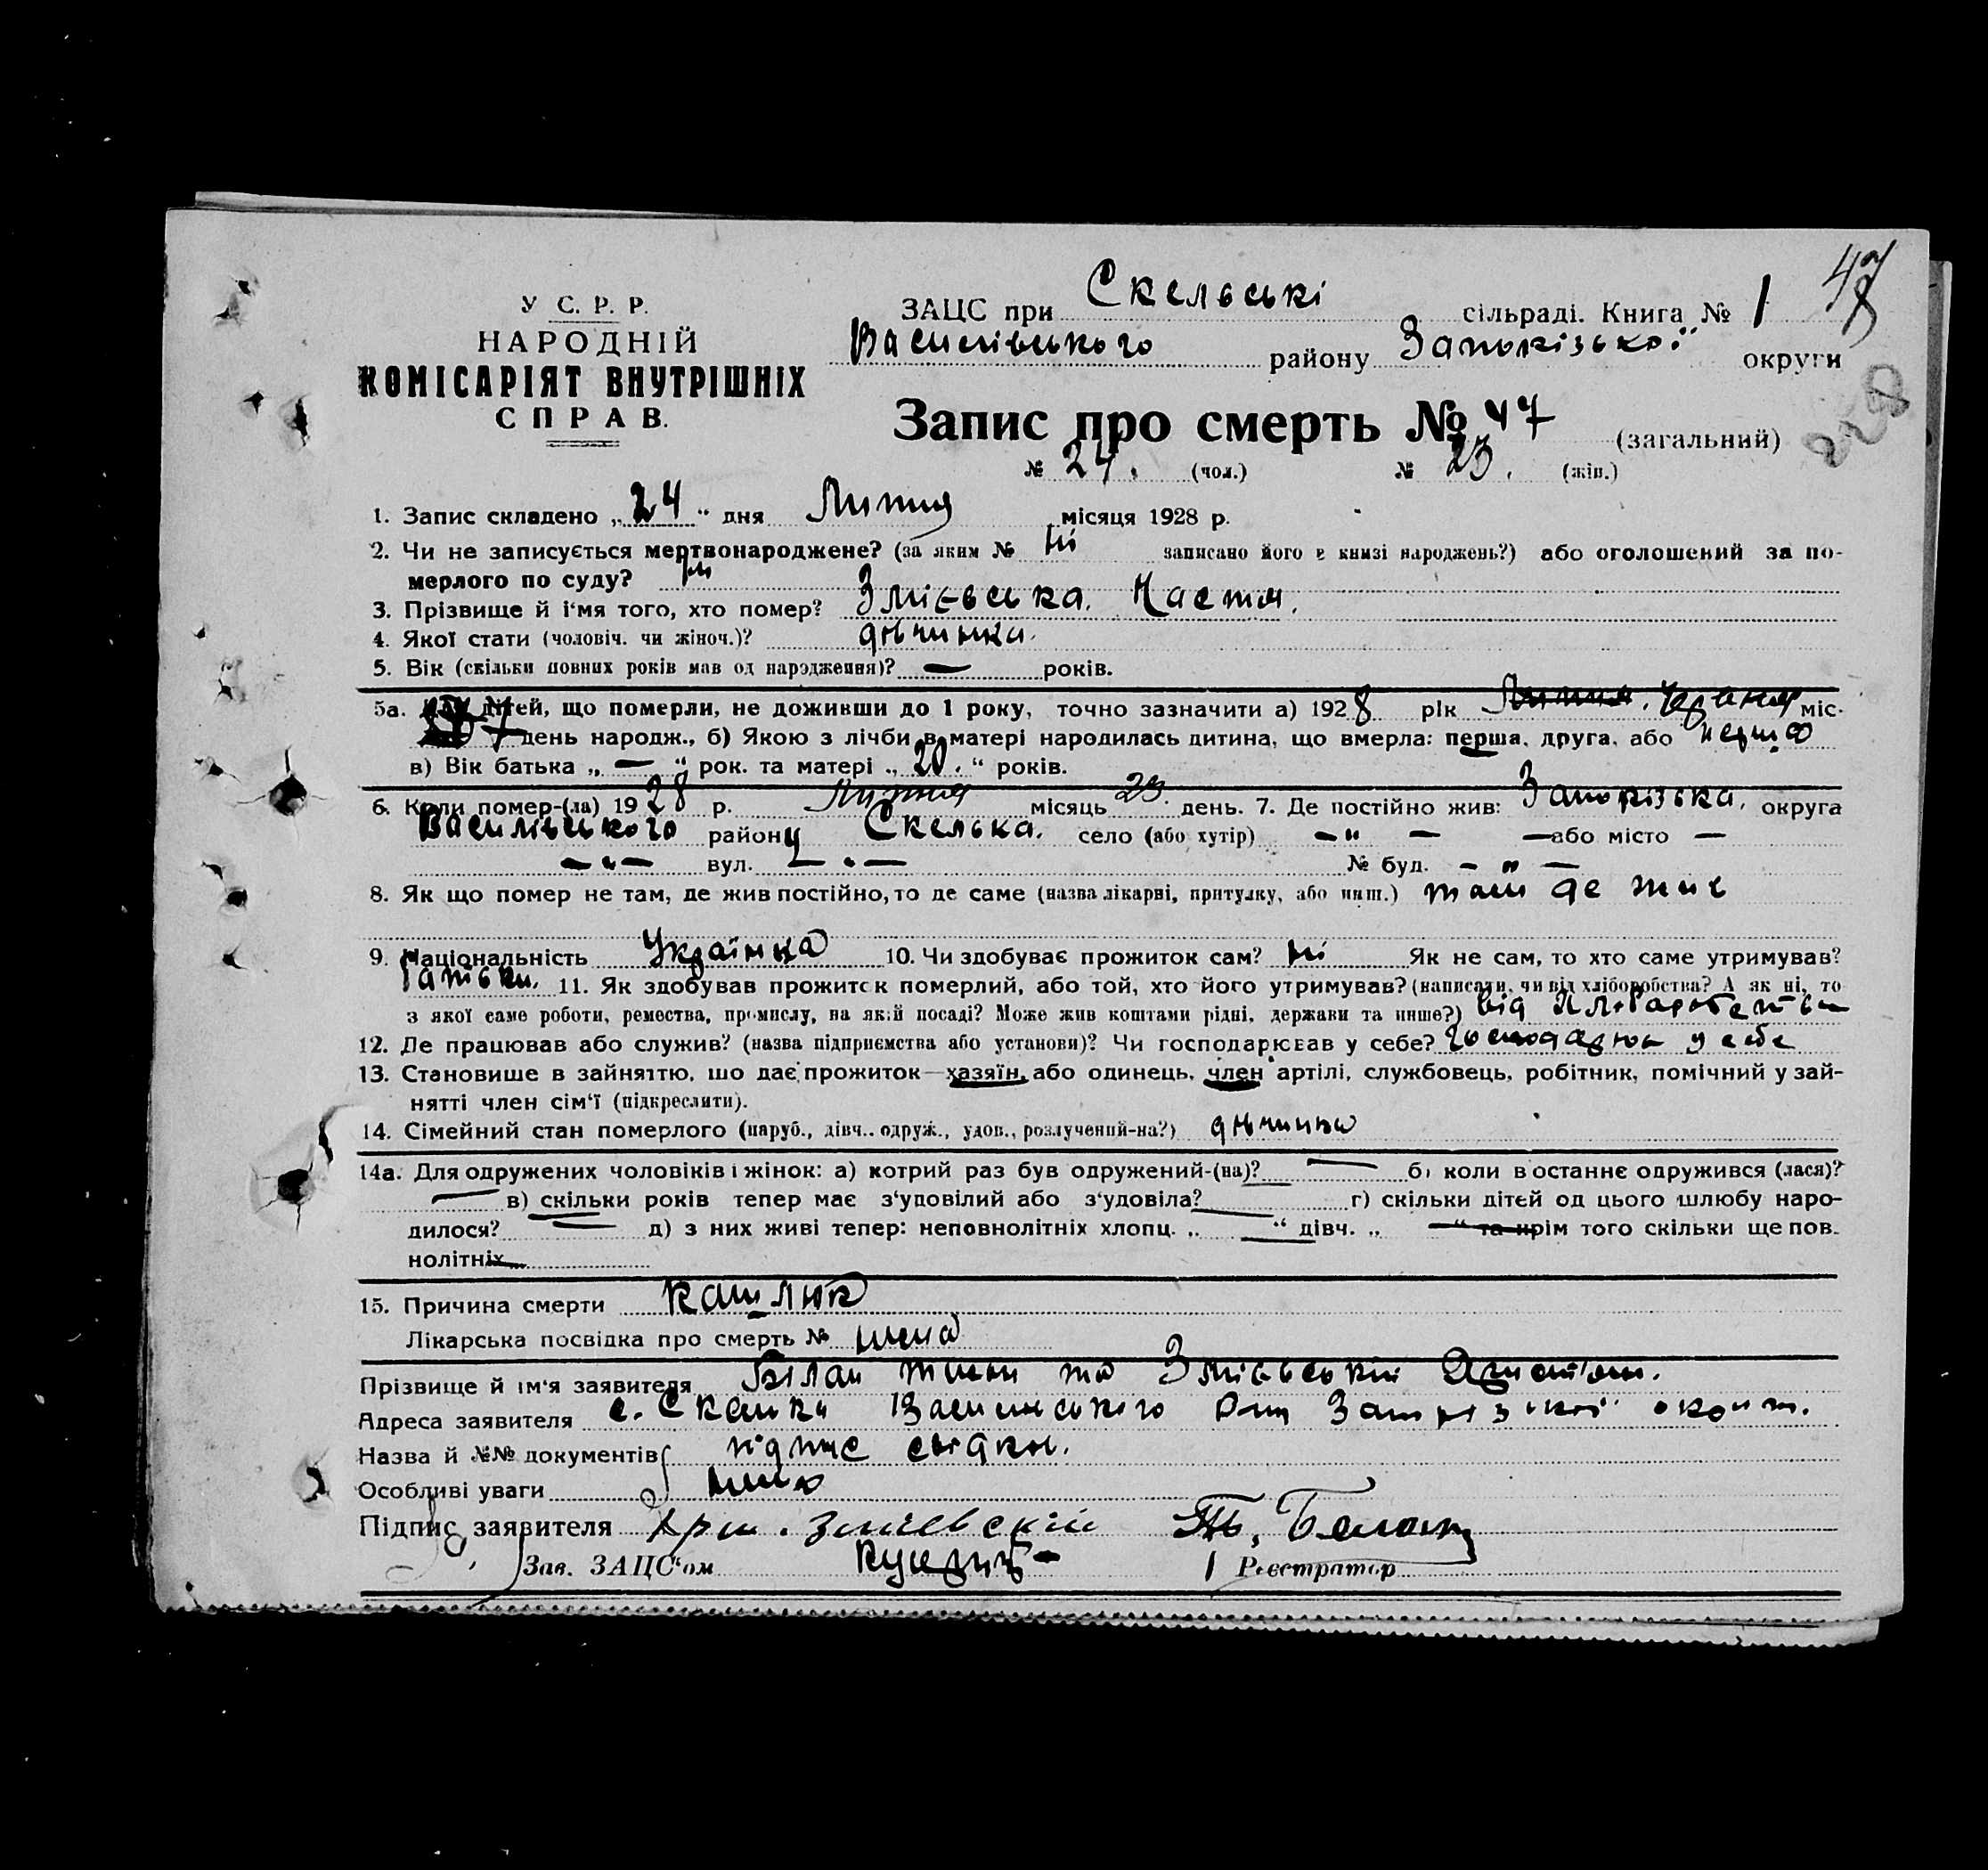 У С. Р. Р.
НАРОДНІЙ
КОМІСАРІЯТ ВНУТРІШНІХ
СПРАВ.
47
ЗАЦС при Скельські сільраді. Книга № 1
Василівського району Запорізької округи
Запис про смерть № 47 (загальний)
№ 24. (чол.) № 23. (жін.)
1. Запис складено „24“ дня Липня місяця 1928 р.
2. Чи не записується мертвонароджене? (за яким № ні записано його в книзі народжень?) або оголошений за по-
мерлого по суду? ні
3. Прізвище й і'мя того, хто помер? Змієвська. Настя.
4. Якої стати (чоловіч. чи жіноч.)? дівчинка.
5. Вік (скільки повних років мав од народження)? — років.
5а. Для дітей, що померли, не доживши до 1 року, точно зазначити а) 1928 рік Липня. Червня міс.
7 день народж., б) Якою з лічби в матері народилась дитина, що вмерла: перша, друга, або перша
в) Вік батька „ — “ рок. та матері „ 20. “ років.
6. Коли помер-(ла) 1928 р. Липня місяць 23. день. 7. Де постійно жив: Запорізька. округа
Василівського району Скелька. село (або хутір) — " — — або місто —
— " — вул. — " — № буд. — " —
8. Як що помер не там, де жив постійно, то де саме (назва лікарні, притулку, або инш.) там де жив
9. Національність Українка 10. Чи здобуває прожиток сам? ні Як не сам, то хто саме утримував?
Батьки. 11. Як здобував прожиток померлий, або той, хто його утримував? (написати, чи від хліборобства? А як ні, то
з якої саме роботи, ремества, промислу, на якій посаді? Може жив коштами рідні, держави та инше?) від
12. Де працював або служив? (назва підприємства або установи)? Чи господарював у себе? у себе
13. Становише в зайняттю, шо дає прожиток—хазяїн, або одинець, член артілі, службовець, робітник, помічний у зай-
нятті член сім'ї (підкреслити).
14. Сімейний стан померлого (паруб., дівч., одруж., удов., розлучений-на?) дівчинка
14а. Для одружених чоловіків і жінок: а) котрий раз був одружений-(на)? — б) коли в останнє одружився (лася)?
— в) скільки років тепер має з'удовілий або з'удовіла? — г) скільки дітей од цього шлюбу наро-
дилося? — д) з них живі тепер: неповнолітніх хлопц. „ — “ дівч. „ — “ та крім того скільки ще пов-
нолітніх —
15. Причина смерти кашлюк
Лікарська посвідка про смерть № нема
Прізвище й ім'я заявителя Білан та Змієвський
Адреса заявителя с. Скельки
Назва й №№ документів підпис свідки.
Особливі уваги
Підпис заявителя Хрис. Змиевский
Зав. ЗАЦС'ом
Реєстратор